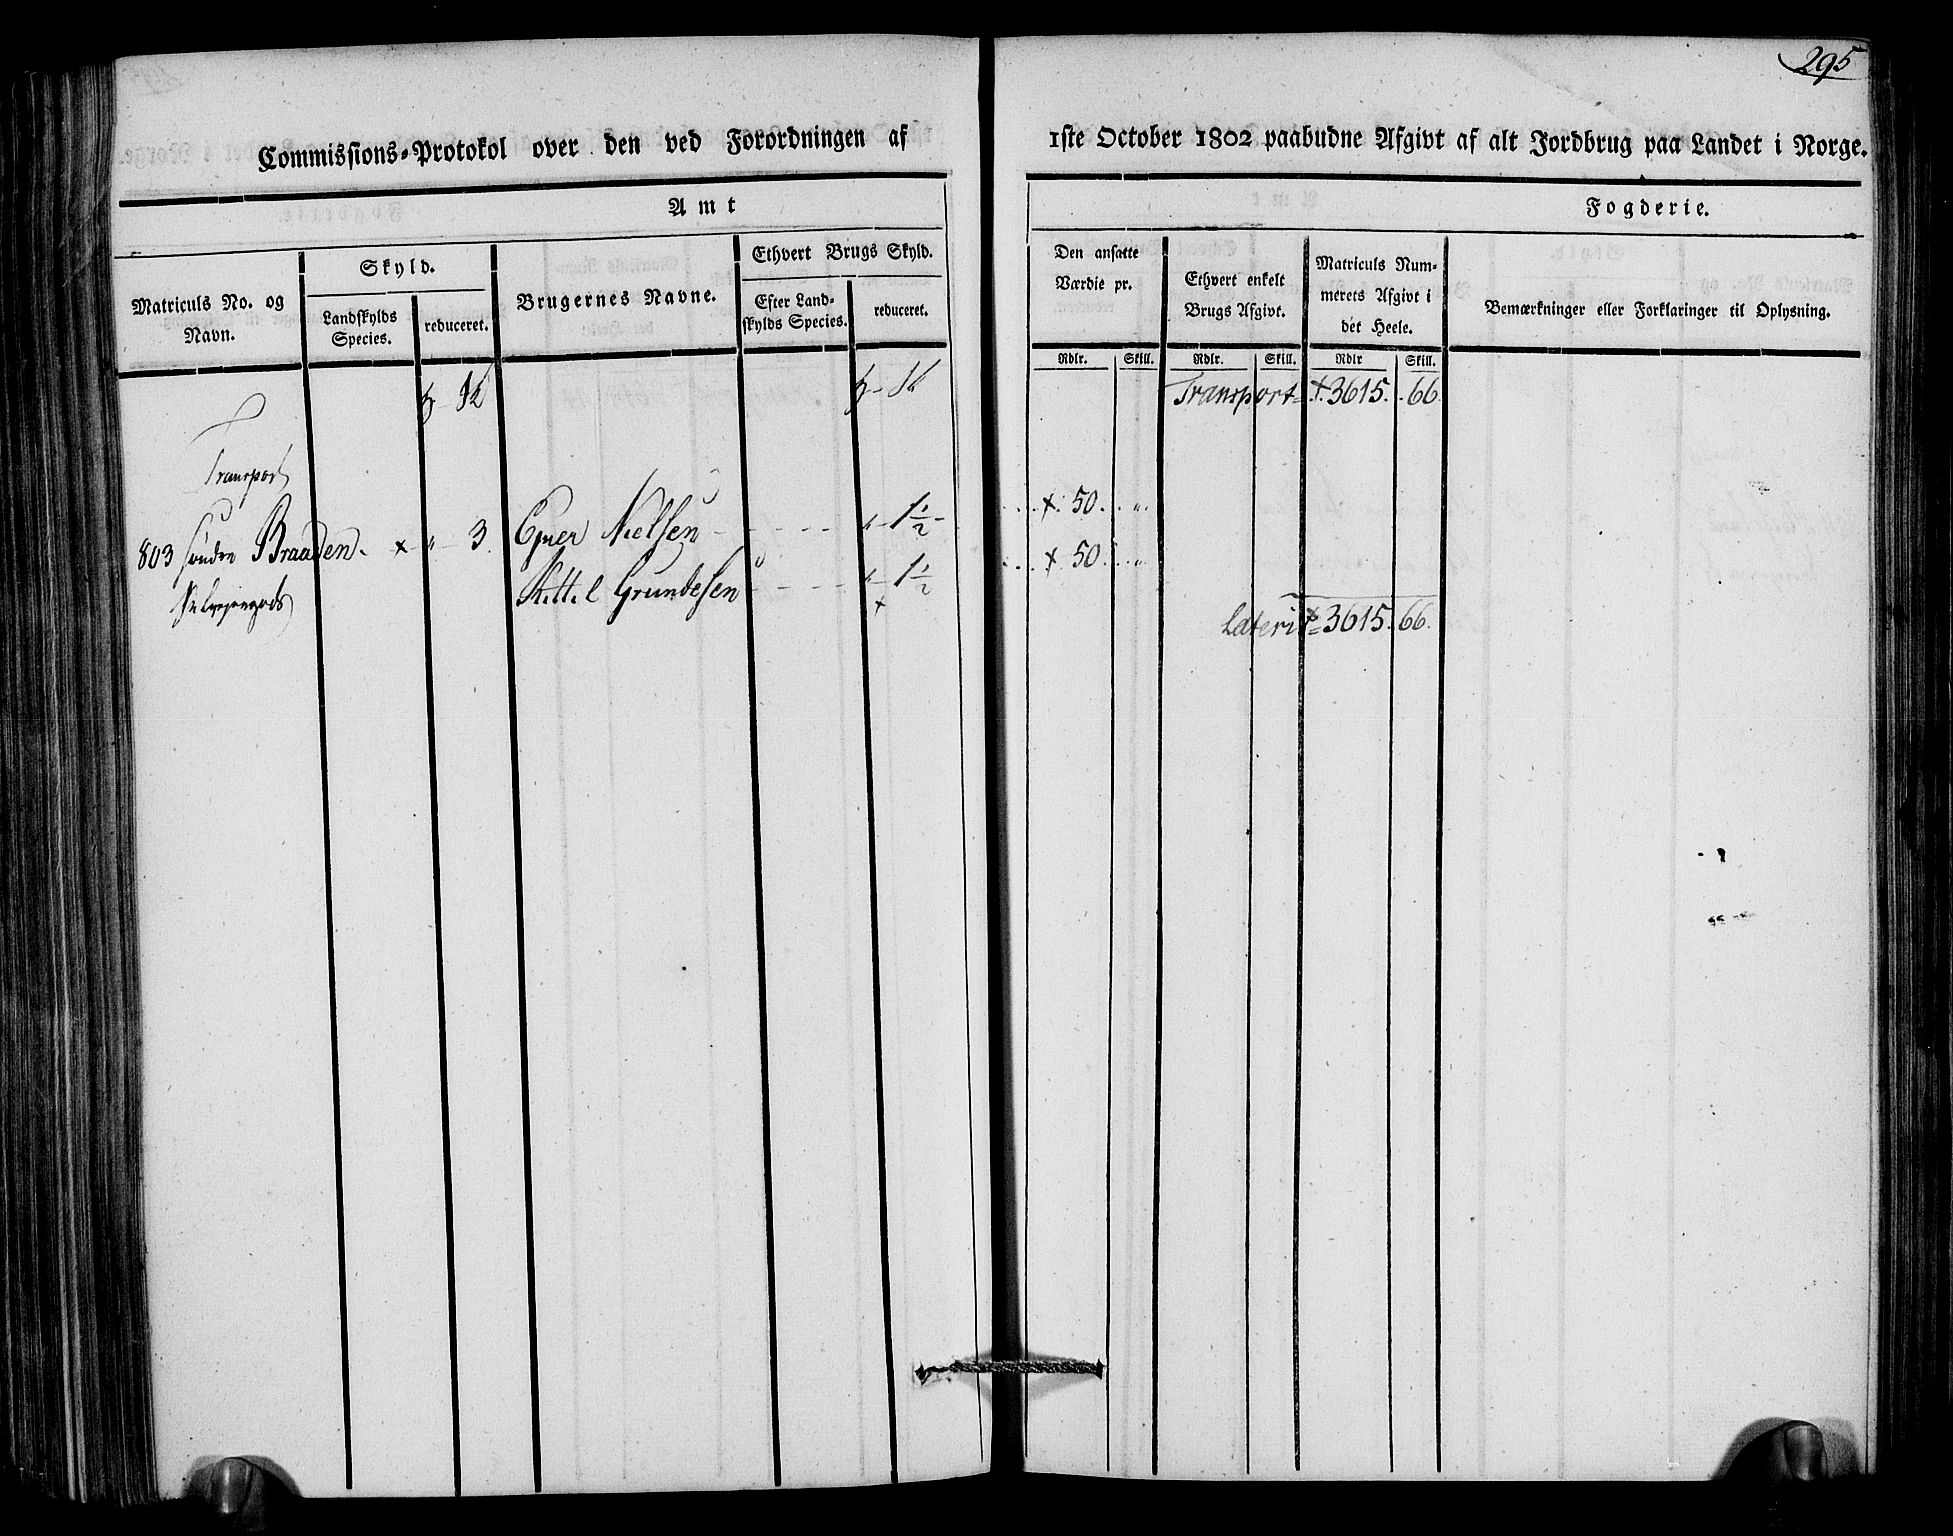 295
Commissions-Protokol over den ved Forordningen af
1ste October 1802 paabudne Afgivt af alt Jordbrug paa Landet i Norge.
Amt
Fogderie.
Matriculs No. og
Navn.
Skyld.
Landskylds
Species.
reduceret.
Brugernes Navne.
Ethvert Brugs Skyld.
Efter Land-
skylds Species.
reduceret.
Den ansatte
Værdie pr.
Ethvert enkelt
Brugs Afgivt.
Matriculs Num-
merets Afgivt i
det Heele.
Bemærkninger eller Forklaringer til Oplysning.
Rdlr. Skill. Rdlr. Skill. Rdlr Skill.
Transport 3615. 66.
Transport
803 Søndre Braaden. 3 Nielsen 1½ 50
Kittil Grundesen 1½ 50
Lateris 3615. 66.